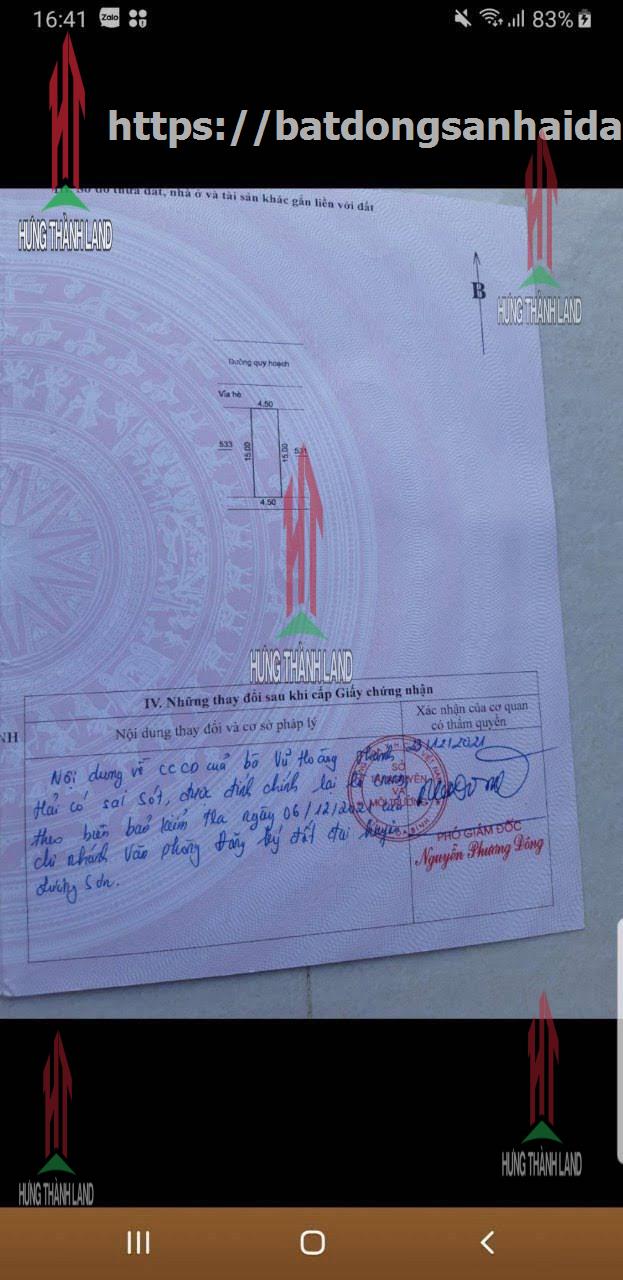 16:41 Zalo 83%
https://batdongsanhaida
III. Sơ đồ thửa đất, nhà ở và tài sản khác gắn liền với đất
HƯNG THÀNH LAND
HƯNG THÀNH LAND
B
Đường quy hoạch
Vỉa hè
4.50
533
15.00
15.00
531
4.50
HƯNG THÀNH LAND
IV. Những thay đổi sau khi cấp Giấy chứng nhận
NH
Nội dung thay đổi và cơ sở pháp lý
Xác nhận của cơ quan
có thẩm quyền
Nội dung về CCCD của bà Vũ Hoàng Thanh
Hải có sai sót, được đính chính lại
theo biên bản kiểm tra ngày 06/12/2021 của
chi nhánh Văn phòng Đăng ký đất đai huyện
Lương Sơn.
/12/2021
SỞ
TÀI NGUYÊN
VÀ
MÔI TRƯỜNG
PHÓ GIÁM ĐỐC
Nguyễn Phương Đông
HƯNG THÀNH LAND
HƯNG THÀNH LAND